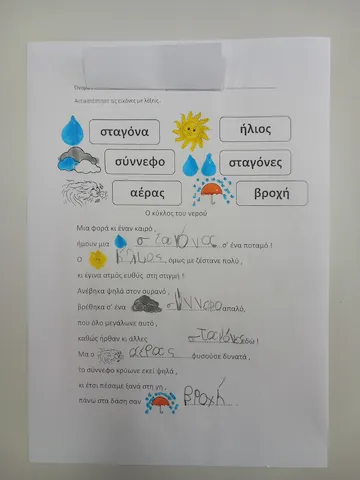 Όνομα:
Αντικατέστησε τις εικόνες με λέξεις.
σταγόνα ήλιος
σύννεφο σταγόνες
αέρας βροχή
Ο κύκλος του νερού
Μια φορά κι έναν καιρό ,
ήμουν μια σταγόνα σ' ένα ποταμό !
Ο ήλιος όμως με ζέστανε πολύ ,
κι έγινα ατμός ευθύς στη στιγμή !
Ανέβηκα ψηλά στον ουρανό ,
βρέθηκα σ' ένα σύννεφο απαλό,
που όλο μεγάλωνε αυτό ,
καθώς ήρθαν κι άλλες σταγόνες εδω !
Μα ο αέρας φυσούσε δυνατά ,
το σύννεφο κρύωνε εκεί ψηλά ,
κι έτσι πέσαμε ξανά στη γη ,
πάνω στα δάση σαν βροχή.